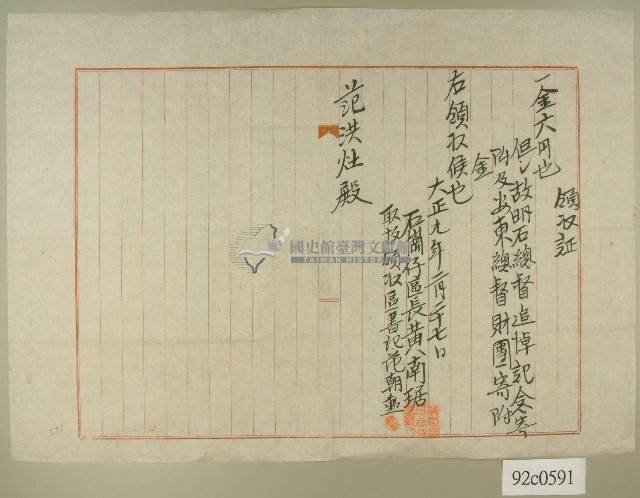 領収証
一金六円也
但シ故明石總督追悼記念寄
附及安東總督財團寄附
金
右領収候也
大正九年二月二十七日
右崗仔區長黃南琚
取扱領収區書記范朝
范洪灶殿
國史館臺灣文獻館
TAIWAN HISTORICA
92c0591